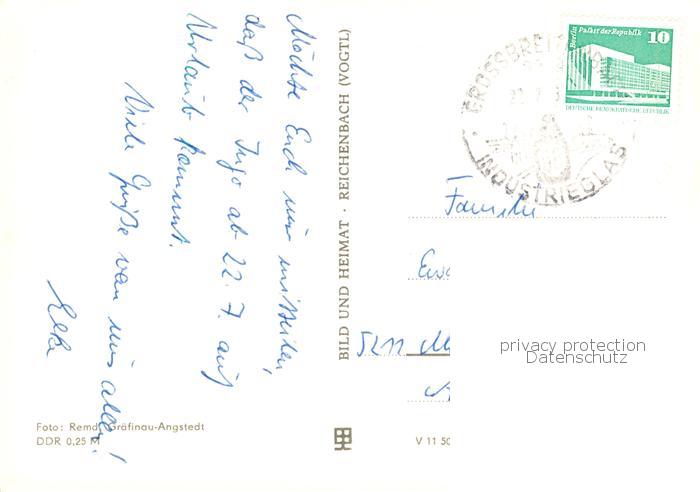 Möchte Euch nur mitteilen,
daß der Ingo ab 22. 7. auf
Urlaub kommt.
Viele Grüße von uns allen!
Elke
BILD UND HEIMAT · REICHENBACH (VOGTL)
Foto: Remd, Gräfinau-Angstedt
DDR 0,25 M
V 11 50
Berlin Palast der Republik
10
DEUTSCHE DEMOKRATISCHE REPUBLIK
GROSSBREIT
INDUSTRIEGLAS
Familie
5211
privacy protection
Datenschutz